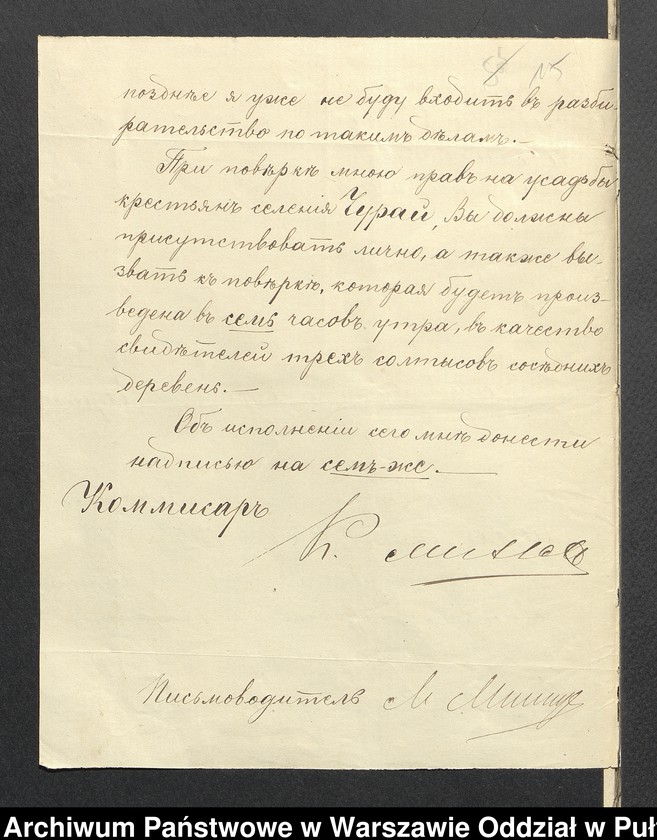 15
позднѣе я уже не буду входить въ разби-
рательство по такимъ дѣламъ.—
При повѣркѣ мною правъ на усадьбы
крестьянъ селенія Чурай, Вы должны
присутствовать лично, а также вы-
звать къ повѣркѣ, которая будетъ произ-
ведена въ семь часовъ утра, въ качество
свидѣтелей трехъ солтысовъ сосѣднихъ
деревень.—
Объ исполненіи сего мнѣ донести
надписью на семъ-же.—
Коммисаръ
К.
Письмоводитель М
Archiwum Państwowe w Warszawie Oddział w Puł